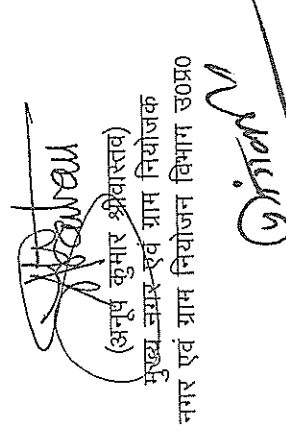 (अनूप कुमार श्रीवास्तव)
मुख्य नगर एवं ग्राम नियोजक
नगर एवं ग्राम नियोजन विभाग उ०प्र०